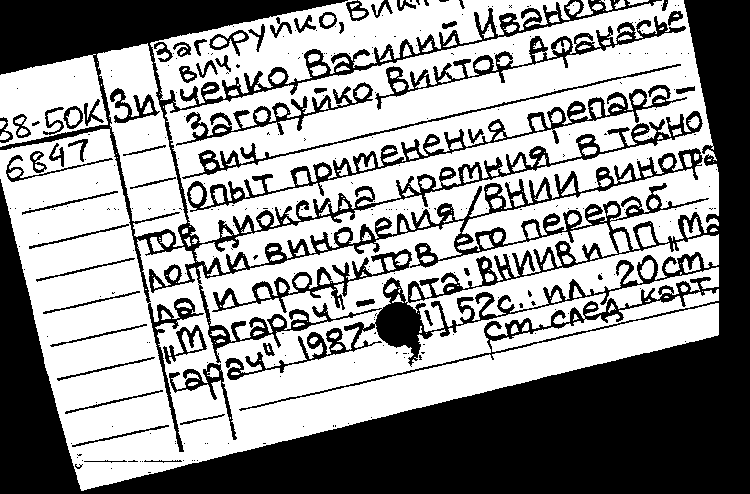 Загоруйко, Виктор
вич.
Зинченко, Василий Иванович,
Загоруйко, Виктор Афанасье
вич.
88-50К
6847
Опыт применения препара-
тов диоксида кремния в техно
логии виноделия / ВНИИ виногра
да и продуктов его перераб.
„Магарач". – Ялта: ВНИИВ и ПП „Ма
гарач", 1987. [i], 52с.: ил.; 20см.
см. след. карт.